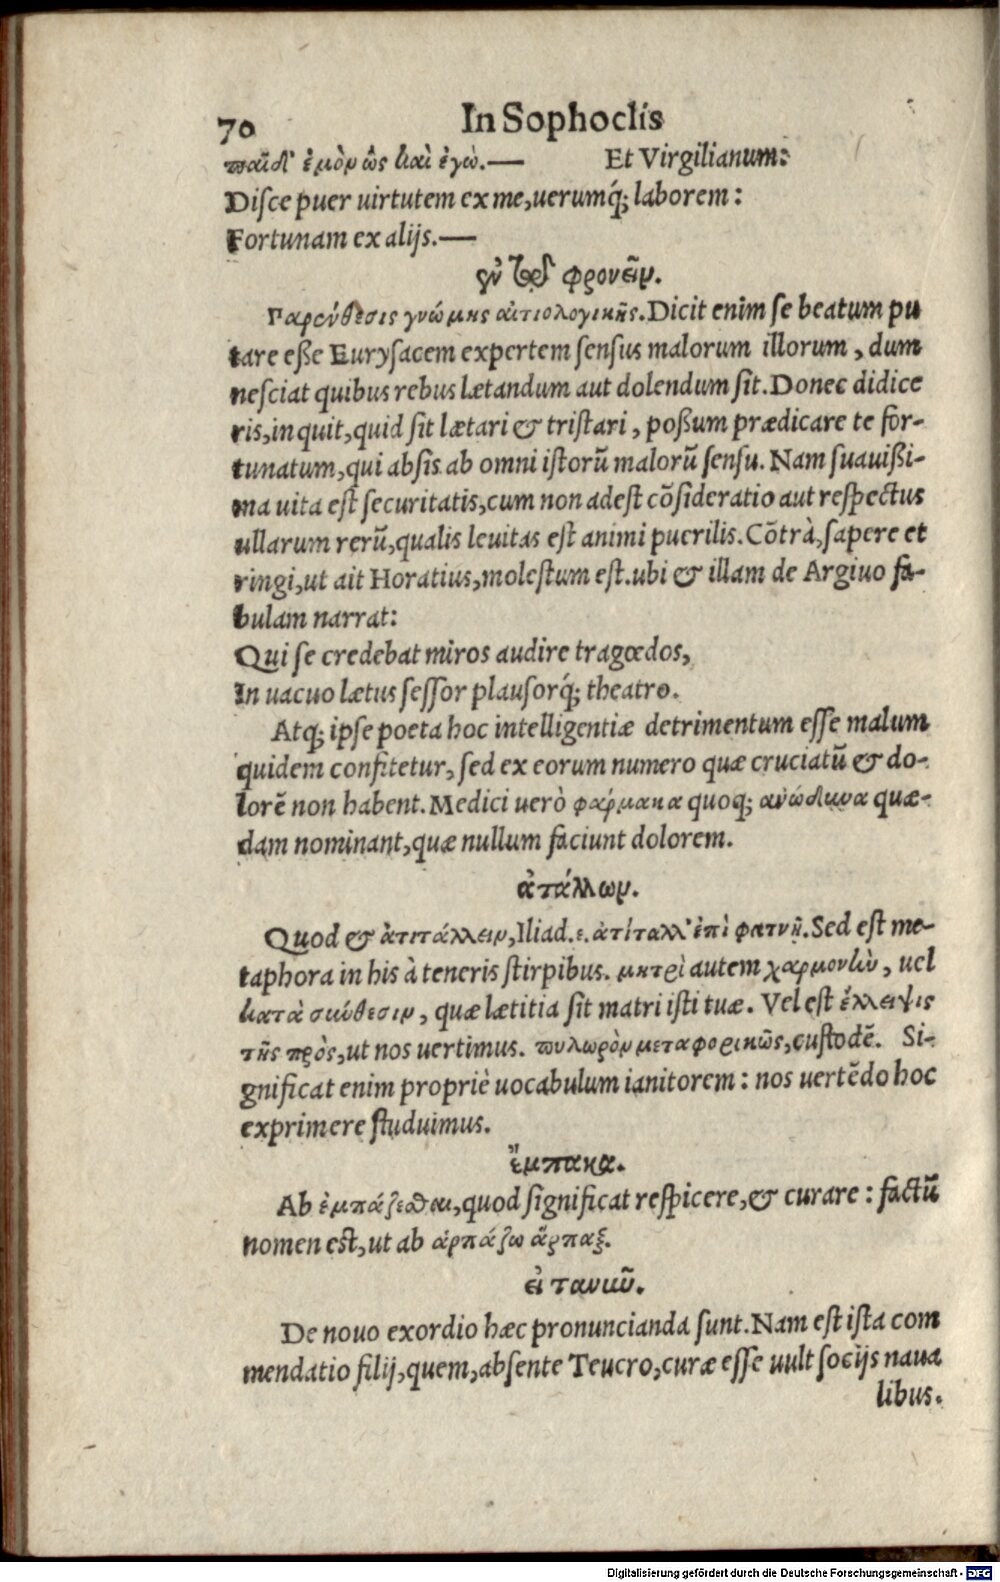 70 In Sophoclis
παῖδ' ἐμὸν ὡς καὶ ἐγώ.— Et Virgilianum:
Disce puer uirtutem ex me, uerumq́; laborem:
Fortunam ex alijs.—
φρονεῖν.
Παρένθεσις γνώμης αἰτιολογικῆς. Dicit enim se beatum pu
tare eße Eurysacem expertem sensus malorum illorum, dum
nesciat quibus rebus lætandum aut dolendum sit. Donec didice
ris, inquit, quid sit lætari & tristari, poßum prædicare te for-
tunatum, qui absis ab omni istorũ malorũ sensu. Nam suauißi-
ma uita est securitatis, cum non adest cõsideratio aut respectus
ullarum rerũ, qualis leuitas est animi puerilis. Cõtrà, sapere et
ringi, ut ait Horatius, molestum est. ubi & illam de Argiuo fa-
bulam narrat:
Qui se credebat miros audire tragœdos,
In uacuo lætus sessor plausorq́; theatro.
Atq; ipse poeta hoc intelligentiæ detrimentum esse malum
quidem confitetur, sed ex eorum numero quæ cruciatũ & do-
lorẽ non habent. Medici uerò φάρμακα quoq; ανώδυνα quæ-
dam nominant, quæ nullum faciunt dolorem.
ἀτάλλων.
Quod & ἀτιτάλλειν, Iliad. ε. ἀτίταλλ' ἐπὶ φατνῇ. Sed est me-
taphora in his à teneris stirpibus. μητρὶ autem χαρμονὴν, uel
κατὰ σύνθεσιν, quæ lætitia sit matri isti tuæ. Vel est ἔλλειψις
τῆς πρὸς, ut nos uertimus. πυλωρὸν μεταφορικῶς, custodẽ. Si-
gnificat enim propriè uocabulum ianitorem: nos uertẽdo hoc
exprimere studuimus.
ἔμπακα.
Ab ἐμπάζεσθαι, quod significat respicere, & curare: factũ
nomen est, ut ab ἁρπάζω ἅρπαξ.
εἰ τανῦν.
De nouo exordio hæc pronuncianda sunt. Nam est ista com
mendatio filij, quem, absente Teucro, curæ esse uult socijs naua
libus.
Digitalisierung gefördert durch die Deutsche Forschungsgemeinschaft - DFG